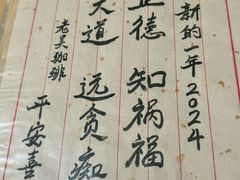 新的一年2024
正德 知祸福
大道 远贪痴
老吴珈琲
平安喜